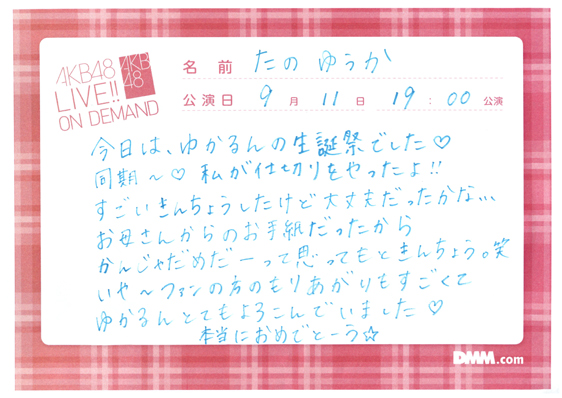 AKB48
LIVE!!
ON DEMAND
AKB
48
名 前 たの ゆうか
公演日 9 月 11 日 19 : 00 公演
今日は、ゆかるんの生誕祭でした♡
同期〜♡ 私が仕切りをやったよ!!
すごいきんちょうしたけど大丈夫だったかな...
お母さんからのお手紙だったから
かんじゃだめだーって思ってもときんちょう。笑
いや〜ファンの方のもりあがりもすごくて
ゆかるんとてもよろこんでいました♡
本当におめでとーう☆
DMM.com